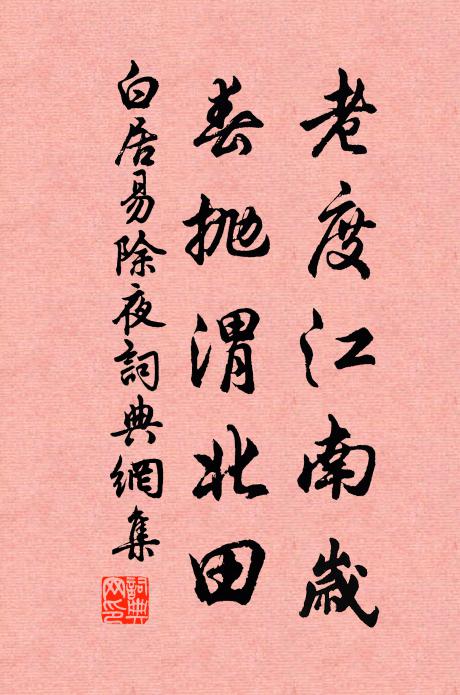 老度江南歲
春拋渭北田
白居易除夜詞典網集
詞典
网印